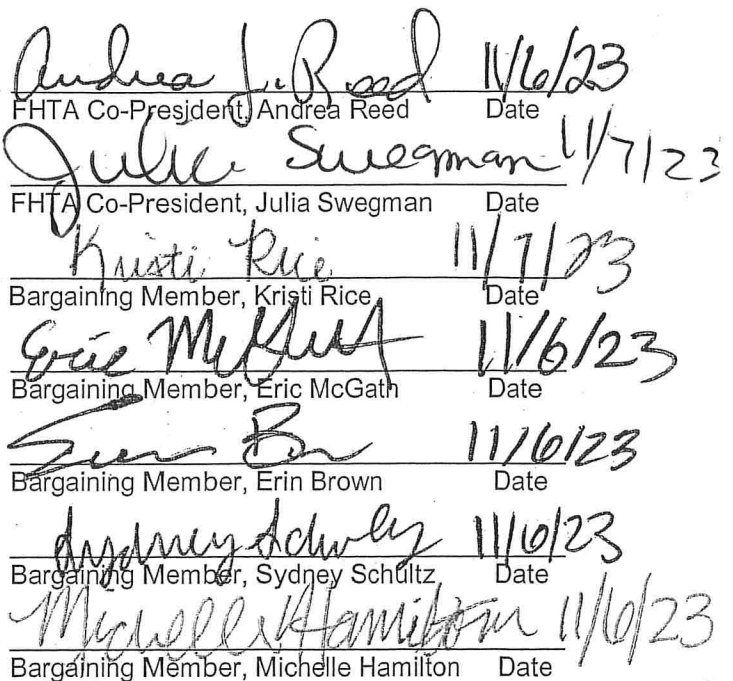 Andrea L. Reed 11/6/23
FHTA Co-President, Andrea Reed Date
Julia Swegman 11/7/23
FHTA Co-President, Julia Swegman Date
Kristi Rice 11/7/23
Bargaining Member, Kristi Rice Date
Eric McGath 11/6/23
Bargaining Member, Eric McGath Date
Erin Brown 11/6/23
Bargaining Member, Erin Brown Date
Sydney Schultz 11/6/23
Bargaining Member, Sydney Schultz Date
Michelle Hamilton 11/6/23
Bargaining Member, Michelle Hamilton Date